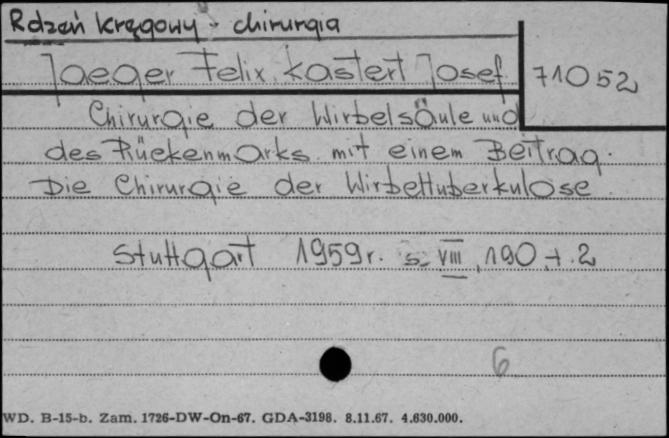 Rdzeń kręgowy - chirurgia
Jaeger Felix. Kastert Josef
71052
Chirurgie der Wirbelsäule und
des Rückenmarks mit einem Beitrag.
Die Chirurgie der Wirbeltuberkulose
Stuttgart 1959r. s. VIII, 190, t. 2
6
WD. B-15-b. Zam. 1726-DW-On-67. GDA-3198. 8.11.67. 4.630.000.